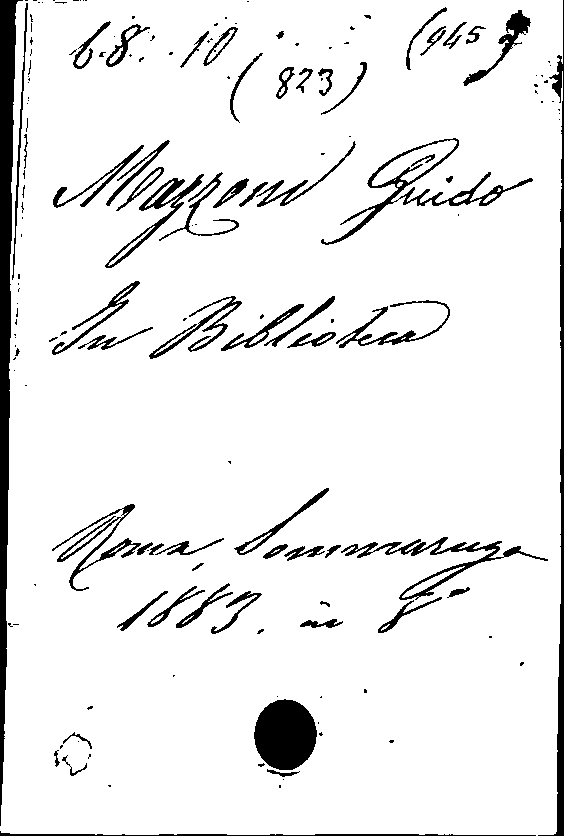 6.8. .10 (945)
(823)
Mazzoni Guido
In Biblioteca
Roma, Sommaruga
1883. in 8°